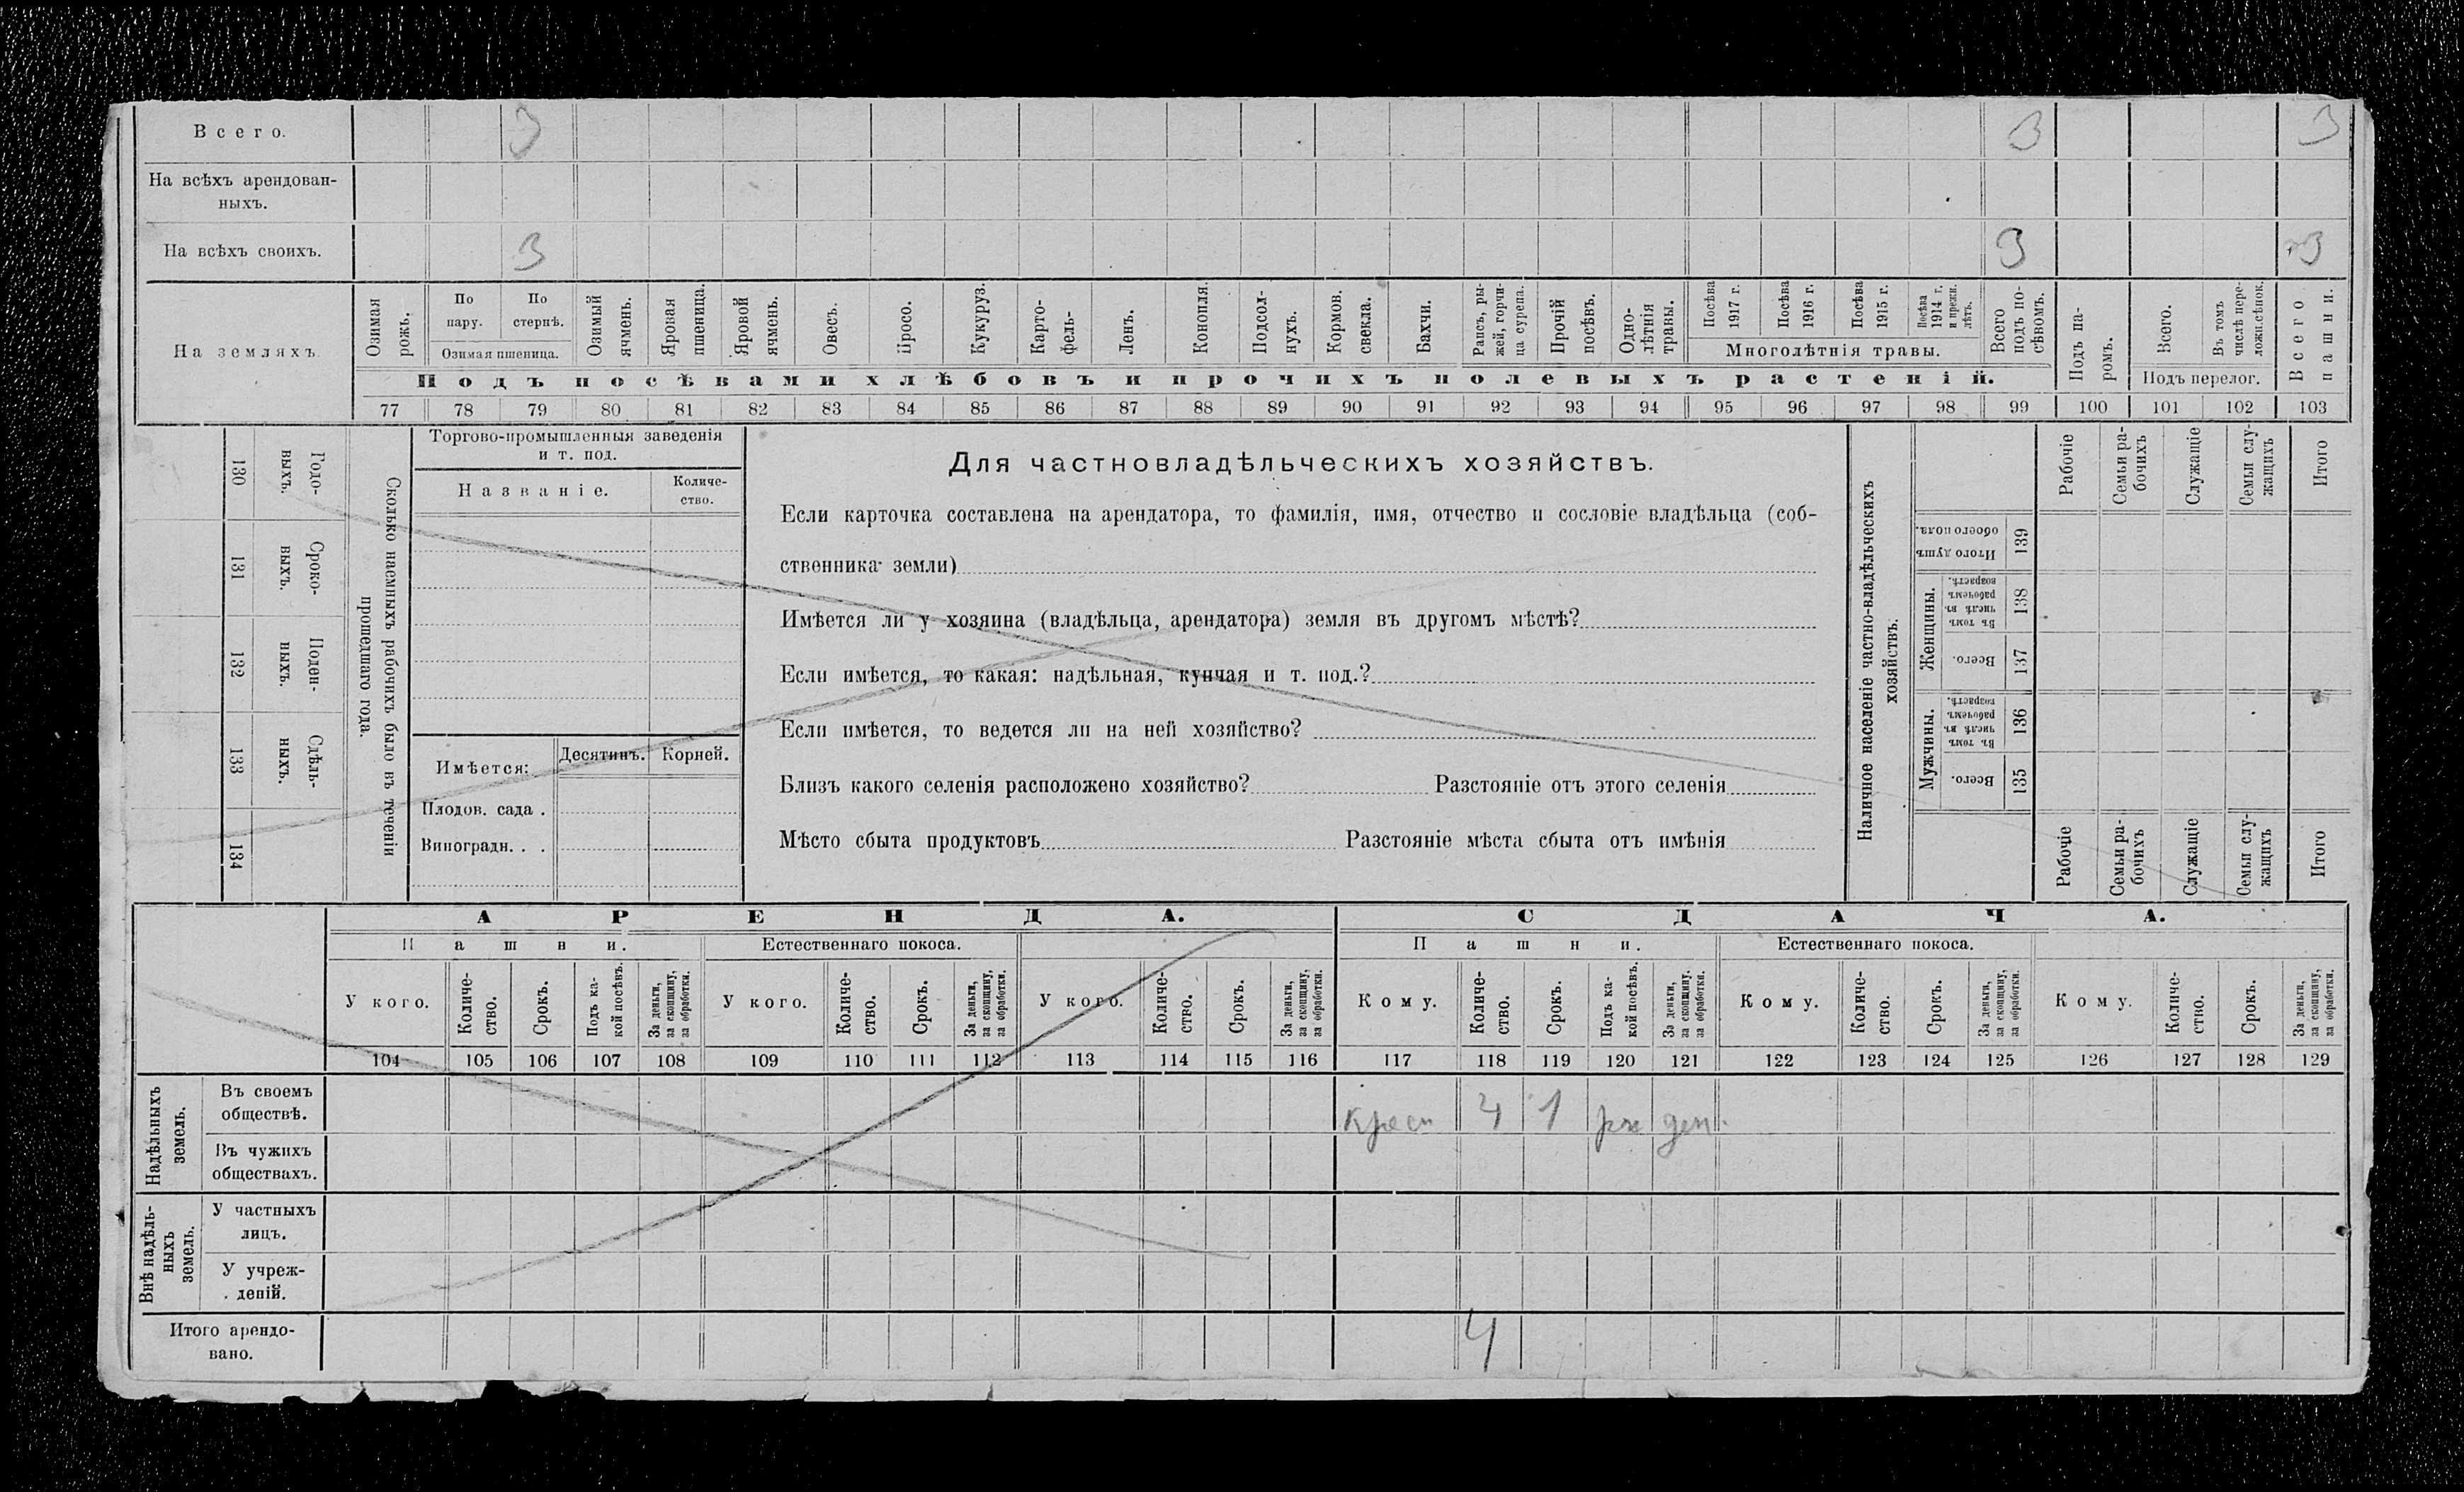 Всего. 3 3 3
На всѣхъ арендован-
ныхъ.
На всѣхъ своихъ. 3 3 3
На земляхъ
Озимая рожь.
По пару.
По стернѣ.
Озимая пшеница.
Озимый ячмень.
Яровая пшеница.
Яровой ячмень.
Овесъ.
Просо.
Кукуруз.
Карто-
фель-
Ленъ.
Конопля.
Подсол-
нухъ.
Кормов. свекла.
Бахчи.
Рапсъ, ры-
жей, горчи-
ца сурепа.
Прочій посѣвъ.
Одно-
лѣтнія
травы.
Посѣва 1917 г.
Посѣва 1916 г.
Посѣва 1915 г.
Посѣва 1914 г. и прежн. лѣтъ.
Многолѣтнія травы.
Всего подъ по-
сѣвомъ.
Подъ па-
ромъ.
Всего.
Въ томъ числѣ пере-
ложн.сѣнок.
Подъ перелог.
Всего пашни.
Подъ посѣвами хлѣбовъ и прочихъ полевыхъ растеній.
77 78 79 80 81 82 83 84 85 86 87 88 89 90 91 92 93 94 95 96 97 98 99 100 101 102 103
130 Годо-
выхъ.
131 Сроко-
выхъ.
132 Поден-
ныхъ.
133 Сдѣль-
ныхъ.
134
Сколько наемныхъ рабочихъ было въ теченіи
прошедшаго года.
Торгово-промышленныя заведенія
и т. под.
Названіе.
Количе-
ство.
Имѣется:
Десятинъ.
Корней.
Плодов. сада .
Виноградн. . .
Для частновладѣльческихъ хозяйствъ.
Если карточка составлена на арендатора, то фамилія, имя, отчество и сословіе владѣльца (соб-
ственника земли)
Имѣется ли у хозяина (владѣльца, арендатора) земля въ другомъ мѣстѣ?
Если имѣется, то какая: надѣльная, купчая и т. под.?
Если имѣется, то ведется ли на ней хозяйство?
Близъ какого селенія расположено хозяйство? Разстояніе отъ этого селенія
Мѣсто сбыта продуктовъ Разстояніе мѣста сбыта отъ имѣнія
Наличное населеніе частно-владѣльческихъ
хозяйствъ.
Рабочіе
Семьи ра-
бочихъ
Служащіе
Семьи слу-
жащихъ
Итого
Итого душъ обоего пола. 139
Женщины.
Въ томъ числѣ въ рабочемъ возрастѣ. 138
Всего. 137
Мужчины.
Въ томъ числѣ въ рабочемъ возрастѣ. 136
Всего. 135
Рабочіе
Семьи ра-
бочихъ
Служащіе
Семьи слу-
жащихъ
Итого
АРЕНДА. СДАЧА.
Пашни. Естественнаго покоса. Пашни. Естественнаго покоса.
У кого.
Количе-
ство.
Срокъ.
Подъ ка-
кой посѣвъ.
За деньги,
за скопщину,
за обработки.
У кого.
Количе-
ство.
Срокъ.
За деньги,
за скопщину,
за обработки.
У кого.
Количе-
ство.
Срокъ.
За деньги,
за скопщину,
за обработки.
Кому.
Количе-
ство.
Срокъ.
Подъ ка-
кой посѣвъ.
За деньги,
за скопщину,
за обработки.
Кому.
Количе-
ство.
Срокъ.
За деньги,
за скопщину,
за обработки.
Кому.
Количе-
ство.
Срокъ.
За деньги,
за скопщину,
за обработки.
104 105 106 107 108 109 110 111 112 113 114 115 116 117 118 119 120 121 122 123 124 125 126 127 128 129
Надѣльныхъ
земель.
Въ своемъ
обществѣ.
крест 4 1 ден.
Въ чужихъ
обществахъ.
Внѣ надѣль-
ныхъ
земель.
У частныхъ
лицъ.
У учреж-
деній.
Итого арендо-
вано.
4